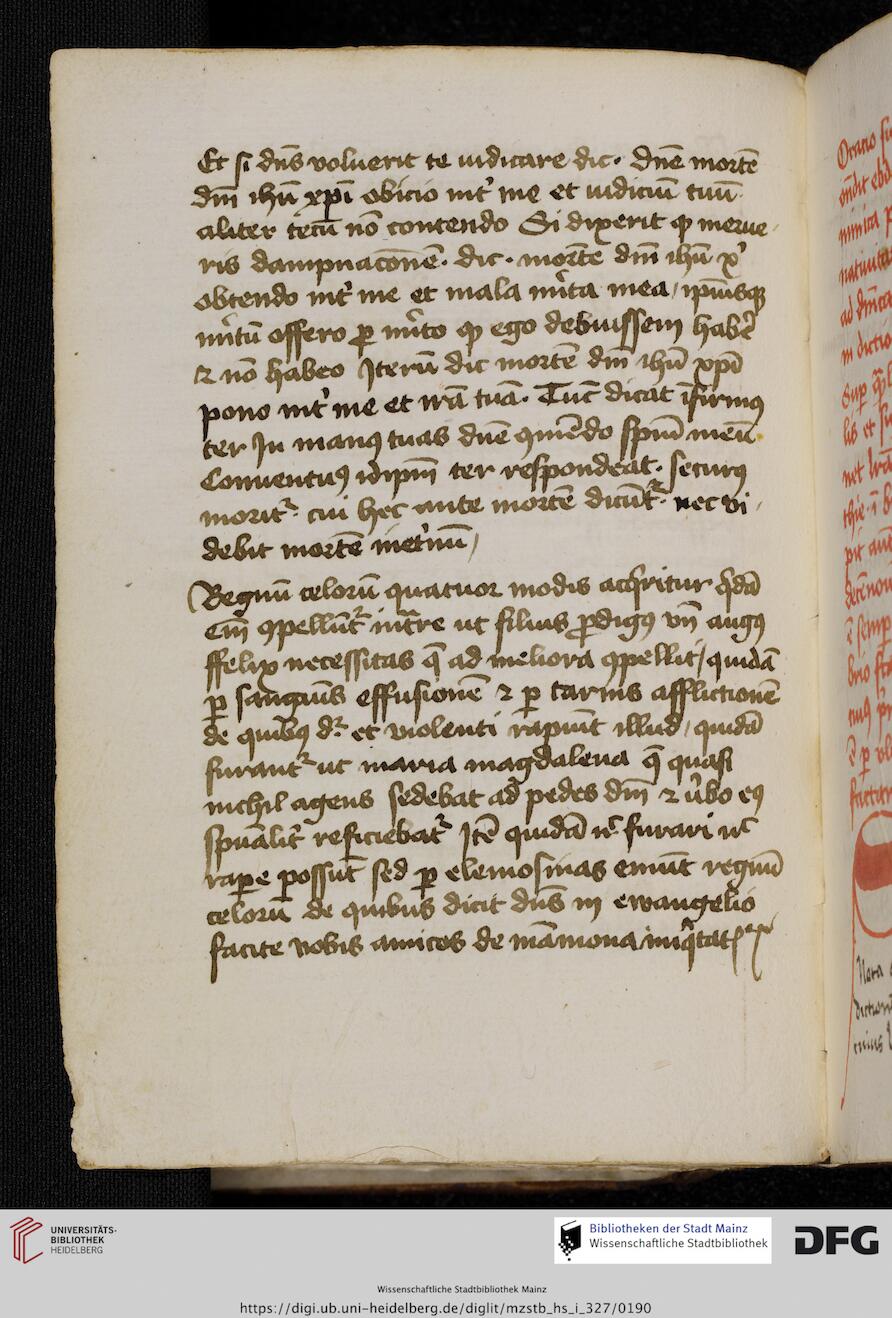 Et si dn̄s voluerit te iudicare dic · dn̄e mortē
dn̄i ihū xp̄i obicio int̓ me et iudiciū tuū
aliter tecū nō contendo Si dixerit ꝙ merue
ris dampnacōnē · dic · mortē dn̄i ihū xp̓
obtendo int̓ me et mala m̓ita mea / ip̄iusqꝫ
m̓itū offero ꝓ m̓ito ꝙ ego debuissem habē
⁊ nō habeo Iterū dic mortē dn̄i ihū xp̄i
pono int̓ me et irā tuā · Tūc dicat īfirmꝰ
ter In manꝰ tuas dn̄e ꝯmēdo spm̄ meū
Conventuꝰ idip̄m ter respondeat · securꝰ
morit᷑ · cui hec ante mortē dicūt᷑ · nec vi
debit mortē inet̓nū /
Regnū celorū quatuor modis acq̓ritur q̓dā
em̄ ꝯpellūt᷑ int̄re ut filius ꝓdigꝰ vn̄ augꝰ
ffelix necessitas q̄ ad meliora ꝯpellit / quidā
ꝑ sanguīs effusionē ⁊ ꝑ carnis afflictionē
de quibꝰ d᷑ · et violenti rapiūt illud / quidā
furant᷑ ut maria magdalena q̄ quasi
nichil agens sedebat ad pedes dn̄i ⁊ v̓bo eꝰ
spūalit̓ reficiebat᷑ Itē quidā nͨ furari nͨ
rapere possūt sed ꝑ elemosinas emūt regnū
celorū de quibus dicit dn̄s in ewangelio
facite vobis amicos de māmona iniq̓tatꝭ
Oracio
nativita
Nota
UNIVERSITÄTS-
BIBLIOTHEK
HEIDELBERG
Bibliotheken der Stadt Mainz
Wissenschaftliche Stadtbibliothek
DFG
Wissenschaftliche Stadtbibliothek Mainz
https://digi.ub.uni-heidelberg.de/diglit/mzstb_hs_i_327/0190